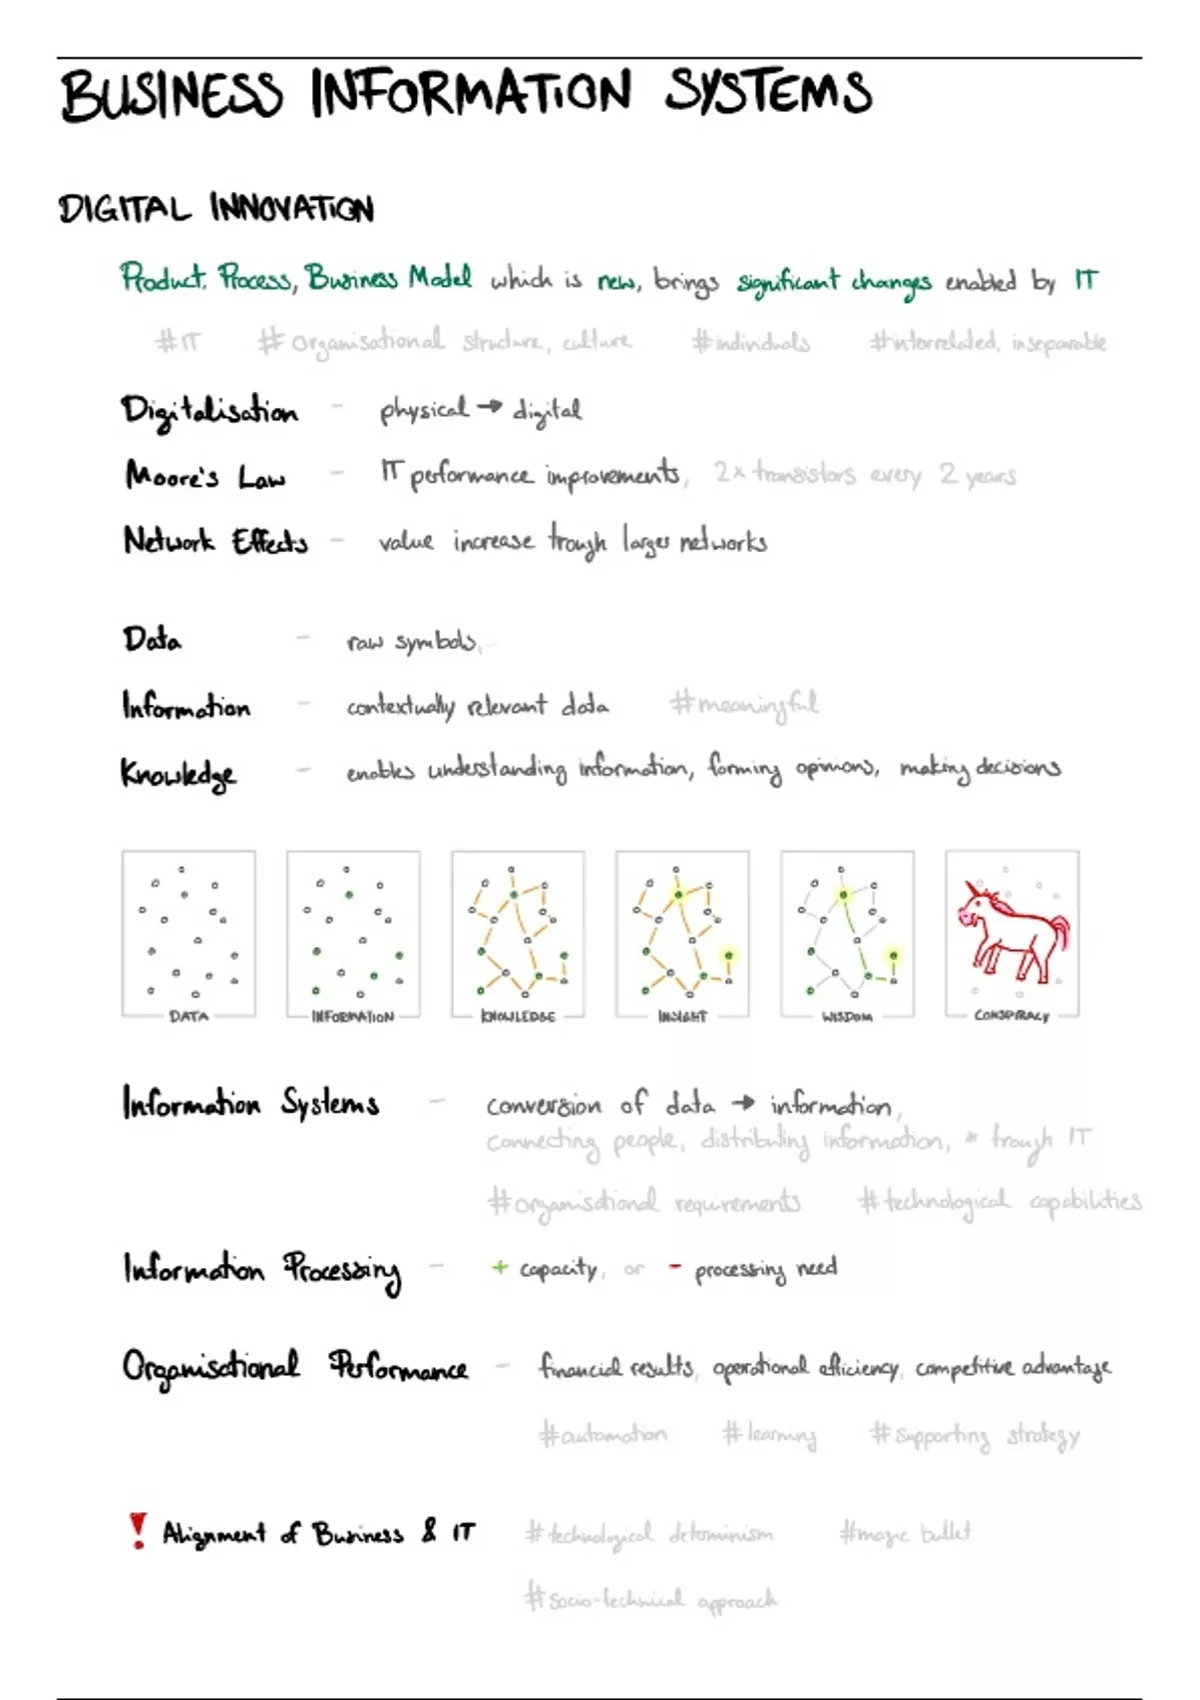 BUSINESS INFORMATION SYSTEMS
DIGITAL INNOVATION
Product, Process, Business Model which is new, brings significant changes enabled by IT
#IT #organisational structure, culture #individuals #interrelated, inseparable
Digitalisation - physical → digital
Moore's Law - IT performance improvements, 2x transistors every 2 years
Network Effects - value increase trough larger networks
Data - raw symbols,
Information - contextually relevant data #meaningful
Knowledge - enables understanding information, forming opinions, making decisions
DATA INFORMATION KNOWLEDGE INSIGHT WISDOM CONSPIRACY
Information Systems - conversion of data → information,
connecting people, distributing information, * trough IT
#organisational requirements #technological capabilities
Information Processing - + capacity, or - processing need
Organisational Performance - financial results, operational efficiency, competitive advantage
#automation #learning #supporting strategy
! Alignment of Business & IT #technological determinism #magic bullet
#socio-technical approach